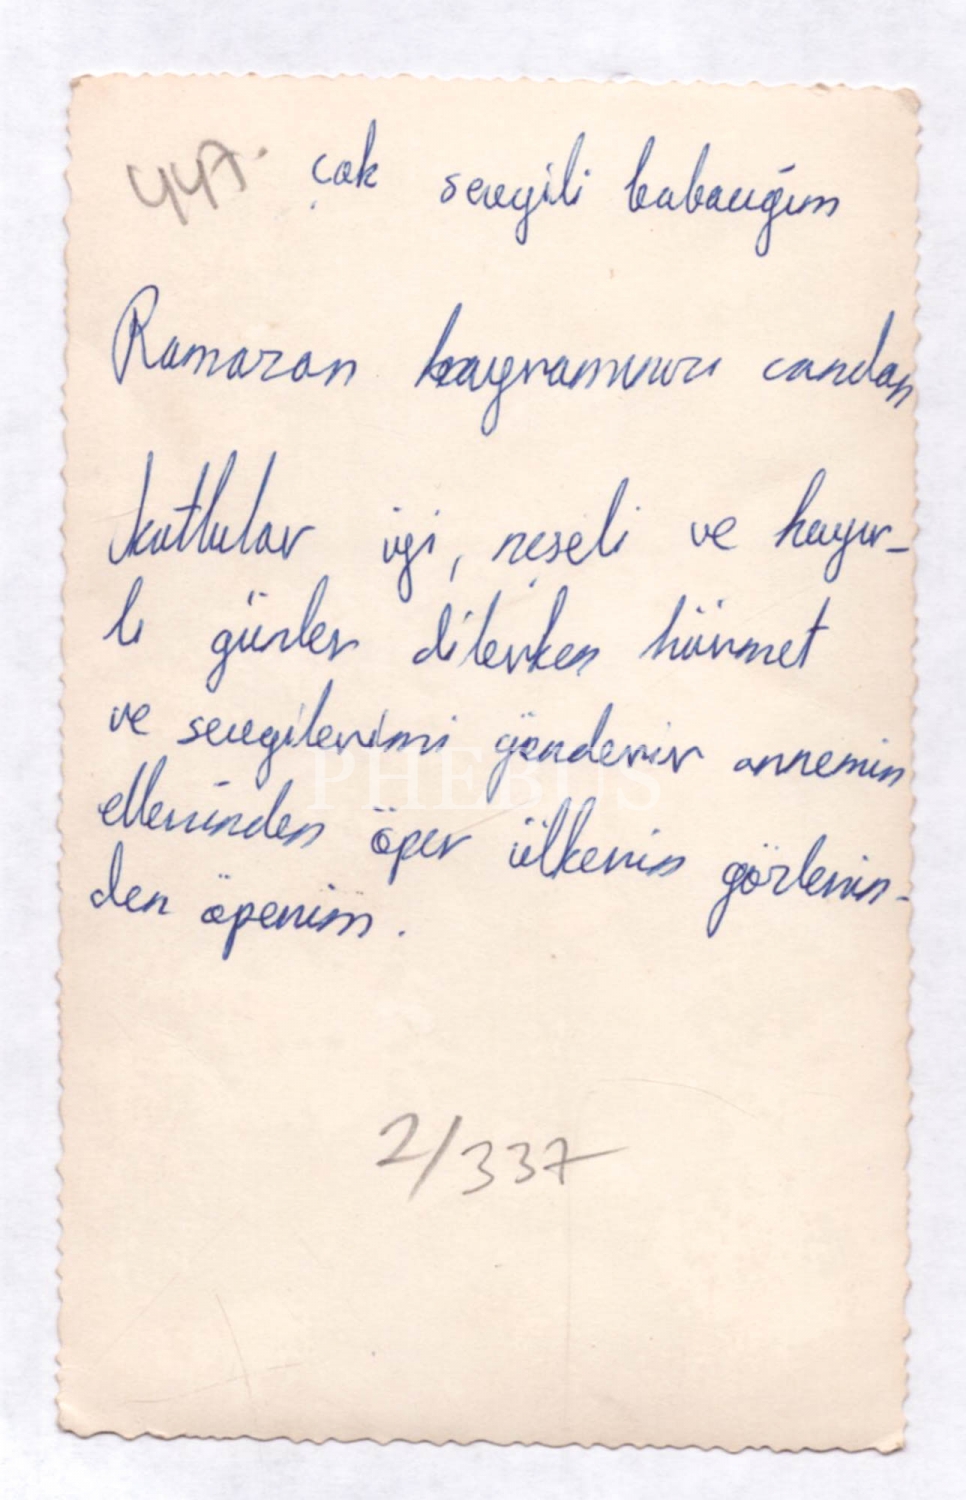 447. Çok sevgili babacığım
Ramazan bayramınızı candan
kutlular iyi, neşeli ve hayır-
lı günler dilerken hürmet
ve sevgilerimi gönderir annemin
PHEBUS
ellerinden öper ülkerin gözlerin-
den öperim.
2/337